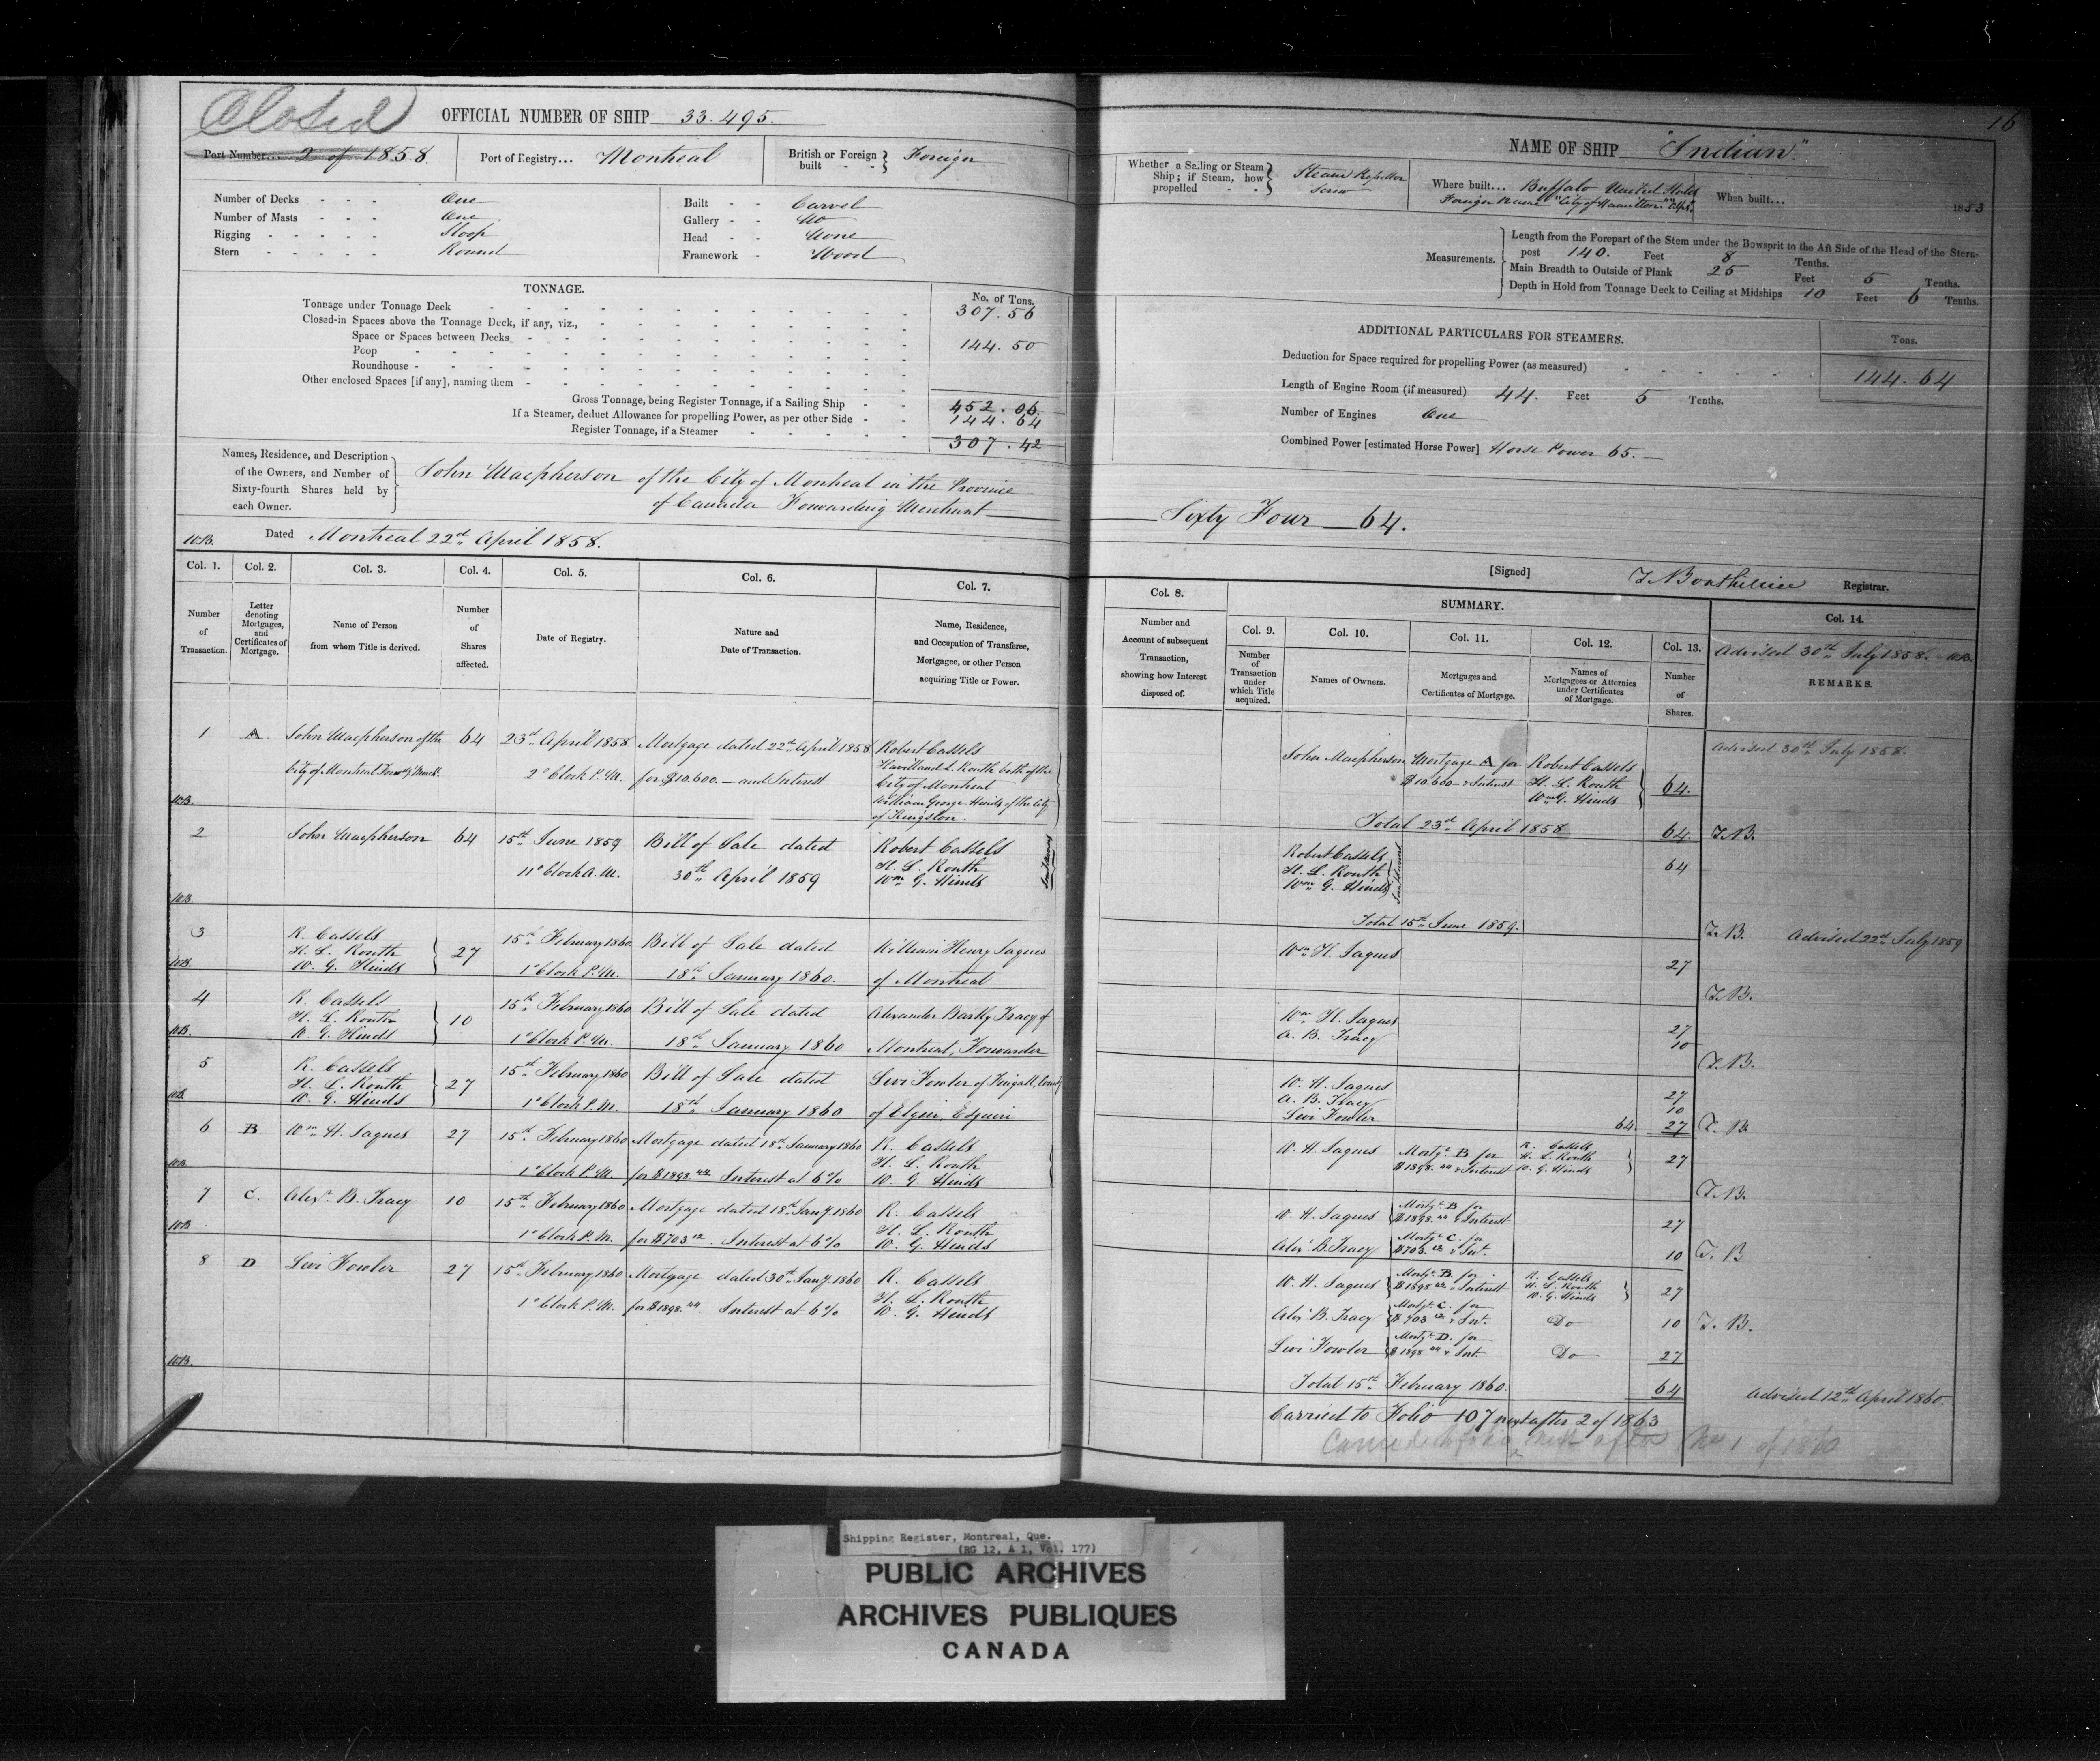 Closed
16
OFFICIAL NUMBER OF SHIP 33.495.
Port Number... 2 of 1858.
Port of Registry... Montreal
British or Foreign built - - } Foreign
Number of Decks - - - One
Number of Masts - - - One
Rigging - - - - - Sloop
Stern - - - - - Round
Built - - Carvel
Gallery - - No
Head - - None
Framework - Wood
TONNAGE.
No. of Tons.
Tonnage under Tonnage Deck 307.56
Closed-in Spaces above the Tonnage Deck, if any, viz.,
Space or Spaces between Decks 144.50
Poop
Roundhouse
Other enclosed Spaces [if any], naming them
Gross Tonnage, being Register Tonnage, if a Sailing Ship 452.06
If a Steamer, deduct Allowance for propelling Power, as per other Side 144.64
Register Tonnage, if a Steamer 307.42
Names, Residence, and Description
of the Owners, and Number of
Sixty-fourth Shares held by
each Owner.
John Macpherson of the City of Montreal in the Province
of Canada Forwarding Merchant
W.B. Dated Montreal 22nd April 1858.
NAME OF SHIP "Indian"
Whether a Sailing or Steam Ship; if Steam, how propelled } Steam Propellor Screw
Where built... Buffalo United States
Foreign Name "City of Hamilton"
When built... 1853
Measurements.
Length from the Forepart of the Stem under the Bowsprit to the Aft Side of the Head of the Stern-
post 140. Feet 8 Tenths.
Main Breadth to Outside of Plank 25 Feet 5 Tenths.
Depth in Hold from Tonnage Deck to Ceiling at Midships 10 Feet 6 Tenths.
ADDITIONAL PARTICULARS FOR STEAMERS.
Tons.
Deduction for Space required for propelling Power (as measured) 144.64
Length of Engine Room (if measured) 44. Feet 5 Tenths.
Number of Engines One
Combined Power [estimated Horse Power] Horse Power 65.
Sixty Four 64.
[Signed] Registrar.
Col. 1. Col. 2. Col. 3. Col. 4. Col. 5. Col. 6. Col. 7.
Number of Transaction.
Letter denoting Mortgages, and Certificates of Mortgage.
Name of Person from whom Title is derived.
Number of Shares affected.
Date of Registry.
Nature and Date of Transaction.
Name, Residence, and Occupation of Transferee, Mortgagee, or other Person acquiring Title or Power.
1 A. John Macpherson of the 64 23rd April 1858. Mortgage dated 22nd April 1858 Robert Cassels
City of Montreal Forwdg Merch. 2 o'Clock P.M. for $10.600.— and Interest Havilland L. Routh both of the
City of Montreal
W.B. William George Hinds of the City
of Kingston.
2 John Macpherson 64 15th June 1859 Bill of Sale dated Robert Cassels
11 o'Clock A.M. 30th April 1859 H. L. Routh
Wm G. Hinds
W.B.
3 R. Cassels 27 15th February 1860 Bill of Sale dated William Henry Jaques
H. L. Routh
W.B. W. G. Hinds 1 o'Clock P.M. 18th January 1860. of Montreal
4 R. Cassels 10 15th February 1860 Bill of Sale dated Alexander Bartly Tracy of
H. L. Routh
W.B. W. G. Hinds 1 o'Clock P.M. 18th January 1860 Montreal, Forwarder
5 R. Cassels 27 15th February 1860 Bill of Sale dated Levi Fowler of Fingall, County
H. L. Routh
W.B. W. G. Hinds 1 o'Clock P.M. 18th January 1860 of Elgin, Esquire
6 B. Wm H. Jaques 27 15th February 1860 Mortgage dated 18th January 1860 R. Cassels
H. L. Routh
W.B. 1 o'Clock P.M. for $1898.44 Interest at 6% W. G. Hinds
7 C. Alexr B. Tracy 10 15th February 1860 Mortgage dated 18th Jany 1860 R. Cassels
H. L. Routh
W.B. 1 o'Clock P.M. for $703.12. Interest at 6% W. G. Hinds
8 D Levi Fowler 27 15th February 1860 Mortgage dated 30th Jany 1860 R. Cassels
H. L. Routh
1 o'Clock P.M. for $1898.44. Interest at 6% W. G. Hinds
W.B.
Col. 8.
Number and Account of subsequent Transaction, showing how Interest disposed of.
SUMMARY.
Col. 9. Col. 10. Col. 11. Col. 12. Col. 13. Col. 14.
Number of Transaction under which Title acquired.
Names of Owners.
Mortgages and Certificates of Mortgage.
Names of Mortgagees or Attornies under Certificates of Mortgage.
Number of Shares.
Advised 30th July 1858. W.B.
REMARKS.
Advised 30th July 1858.
John Macpherson Mortgage A for Robert Cassels
$10.600 & Interest H. L. Routh 64.
Wm G. Hinds
Total 23rd April 1858 64. T.B.
Robert Cassels
H. L. Routh 64
Wm G. Hinds
Total 15th June 1859. T.B. Advised 22nd July 1859
Wm H. Jaques 27
T.B.
Wm H. Jaques 27
A. B. Tracy 10
T.B.
W. H. Jaques 27
A. B. Tracy 10
Levi Fowler 64. 27 T.B.
W. H. Jaques Mortge B for R. Cassels
$1898.44 & Interest H. L. Routh 27
W. G. Hinds
T.B.
W. H. Jaques Mortge B for
$1898.44 & Interest 27
Alexr B. Tracy Mortge C. for
$703.12 & Int. 10 T.B
W. H. Jaques Mortge B. for R. Cassels
$1898.44 & Interest H. L. Routh 27
W. G. Hinds
Alexr B. Tracy Mortge C. for
$703.12 & Int. Do 10 T.B.
Levi Fowler Mortge D. for
$1898.44 & Int. Do 27
Total 15th February 1860. 64 Advised 12th April 1860.
Carried to Folio 107 next after 2 of 1863
No 1 of 1860
Shipping Register, Montreal, Que.
(RG 12, A 1, Vol. 177)
PUBLIC ARCHIVES
ARCHIVES PUBLIQUES
CANADA